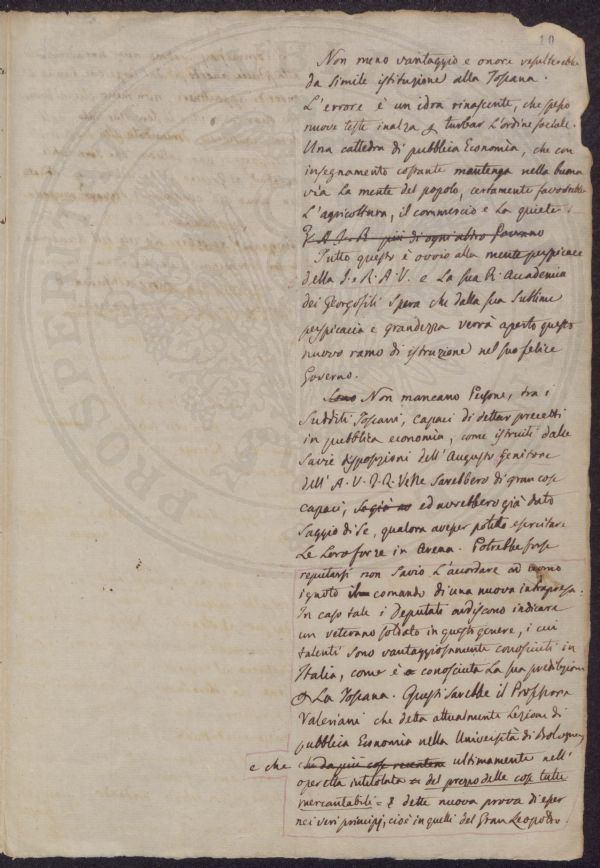 10
Non meno vantaggio e onore resulterebbe
da simile istituzione alla Toscana.
L'errore è un idra rinascente, che spesso
nuove teste inalza e turbar L'ordine sociale.
Una cattedra di pubblica Economia, che con
insegnamento costante mantenga nella buona
via La mente del popolo, certamente favorirebbe
L'agricoltura, il commercio e La quiete.
più di ogni altro Governo
Tutto questo è ovvio alla mente perspicace
della I. e R. A. V. e La sua R. Accademia
dei Georgofili Spera che dalla sua Sublime
perspicacia e grandezza verrà aperto questo
nuovo ramo di istruzione nel suo felice
Governo.
Sono Non mancano Persone, tra i
Sudditi Toscani, capaci di dettar precetti
in pubblica economia, come istruiti dalle
Savie disposizioni dell'Augusto Genitore
dell'A. V. I. R. Nelle Sarebbero di gran cose
capaci, ed avrebbero già dato
Saggio di se, qualora avesser potuto esercitare
Le Loro forze in Arena. Potrebbe forse
reputarsi non Savio L'accordare ad uomo
ignoto il comando di una nuova intrapresa.
In caso tale i Deputati ardiscono indicare
un veterano soldato in questo genere, i cui
talenti Sono vantaggiosamente conosciuti in
Italia, come è conosciuta La sua predilezione
La Toscana. Questi Sarebbe il Professore
Valeriani che detta attualmente Lezioni di
pubblica Economia nella Università di Bologna,
e che ultimamente nell'
operetta intitolata = del prezzo delle cose tutte
mercantabili = dette nuova prova di esser
nei veri principj, cioè in quelli del Gran Leopoldo.